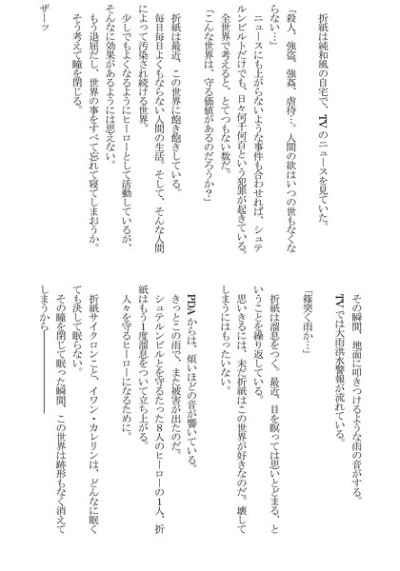 折紙は純和風の自宅で、TVのニュースを見ていた。
「殺人、強盗、強姦、虐待…。人間の欲はいつの世もなくな
らない…」
ニュースにも上がらないような事件も合わせれば、シュテ
ルンビルトだけでも、日々何千何百という犯罪が起きている。
全世界で考えると、とてつもない数だ。
「こんな世界は、守る価値があるのだろうか？」
折紙は最近、この世界に飽き飽きしている。
毎日毎日よくもならない人間の生活。そして、そんな人間
によって汚染され続ける世界。
少しでもよくなるようにヒーローとして活動しているが、
そんなに効果があるようには思えない。
もう退屈だし、世界の事をすべて忘れて寝てしまおうか。
そう考えて瞳を閉じる。
ザーッ
その瞬間、地面に叩きつけるような雨の音がする。
TVでは大雨洪水警報が流れている。
「篠突く雨か…」
折紙は溜息をつく。最近、目を瞑っては思いとどまる、と
いうことを繰り返している。
思いきるには、未だ折紙はこの世界が好きなのだ。壊して
しまうにはもったいない。
PDAからは、煩いほどの音が響いている。
きっとこの雨で、また被害が出たのだ。
シュテルンビルトを守るたった８人のヒーローの１人、折
紙はもう１度溜息をついて立ち上がる。
人々を守るヒーローになるために。
折紙サイクロンこと、イワン・カレリンは、どんなに眠く
ても決して眠らない。
その瞳を閉じて眠った瞬間、この世界は跡形もなく消えて
しまうから――――